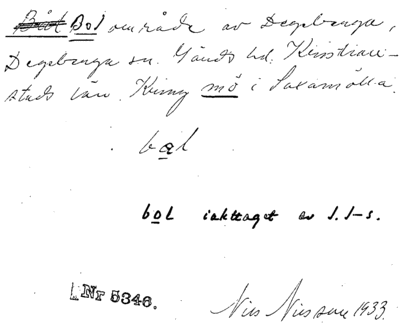 Bol område av Degeberga,
Degeberga sn. Gärds hd. Kristian-
stads län. Kring mö i Saxamölla.
bol
bol iakttaget av J. J-s.
Nr 5346.
Nils Nilsson 1933.